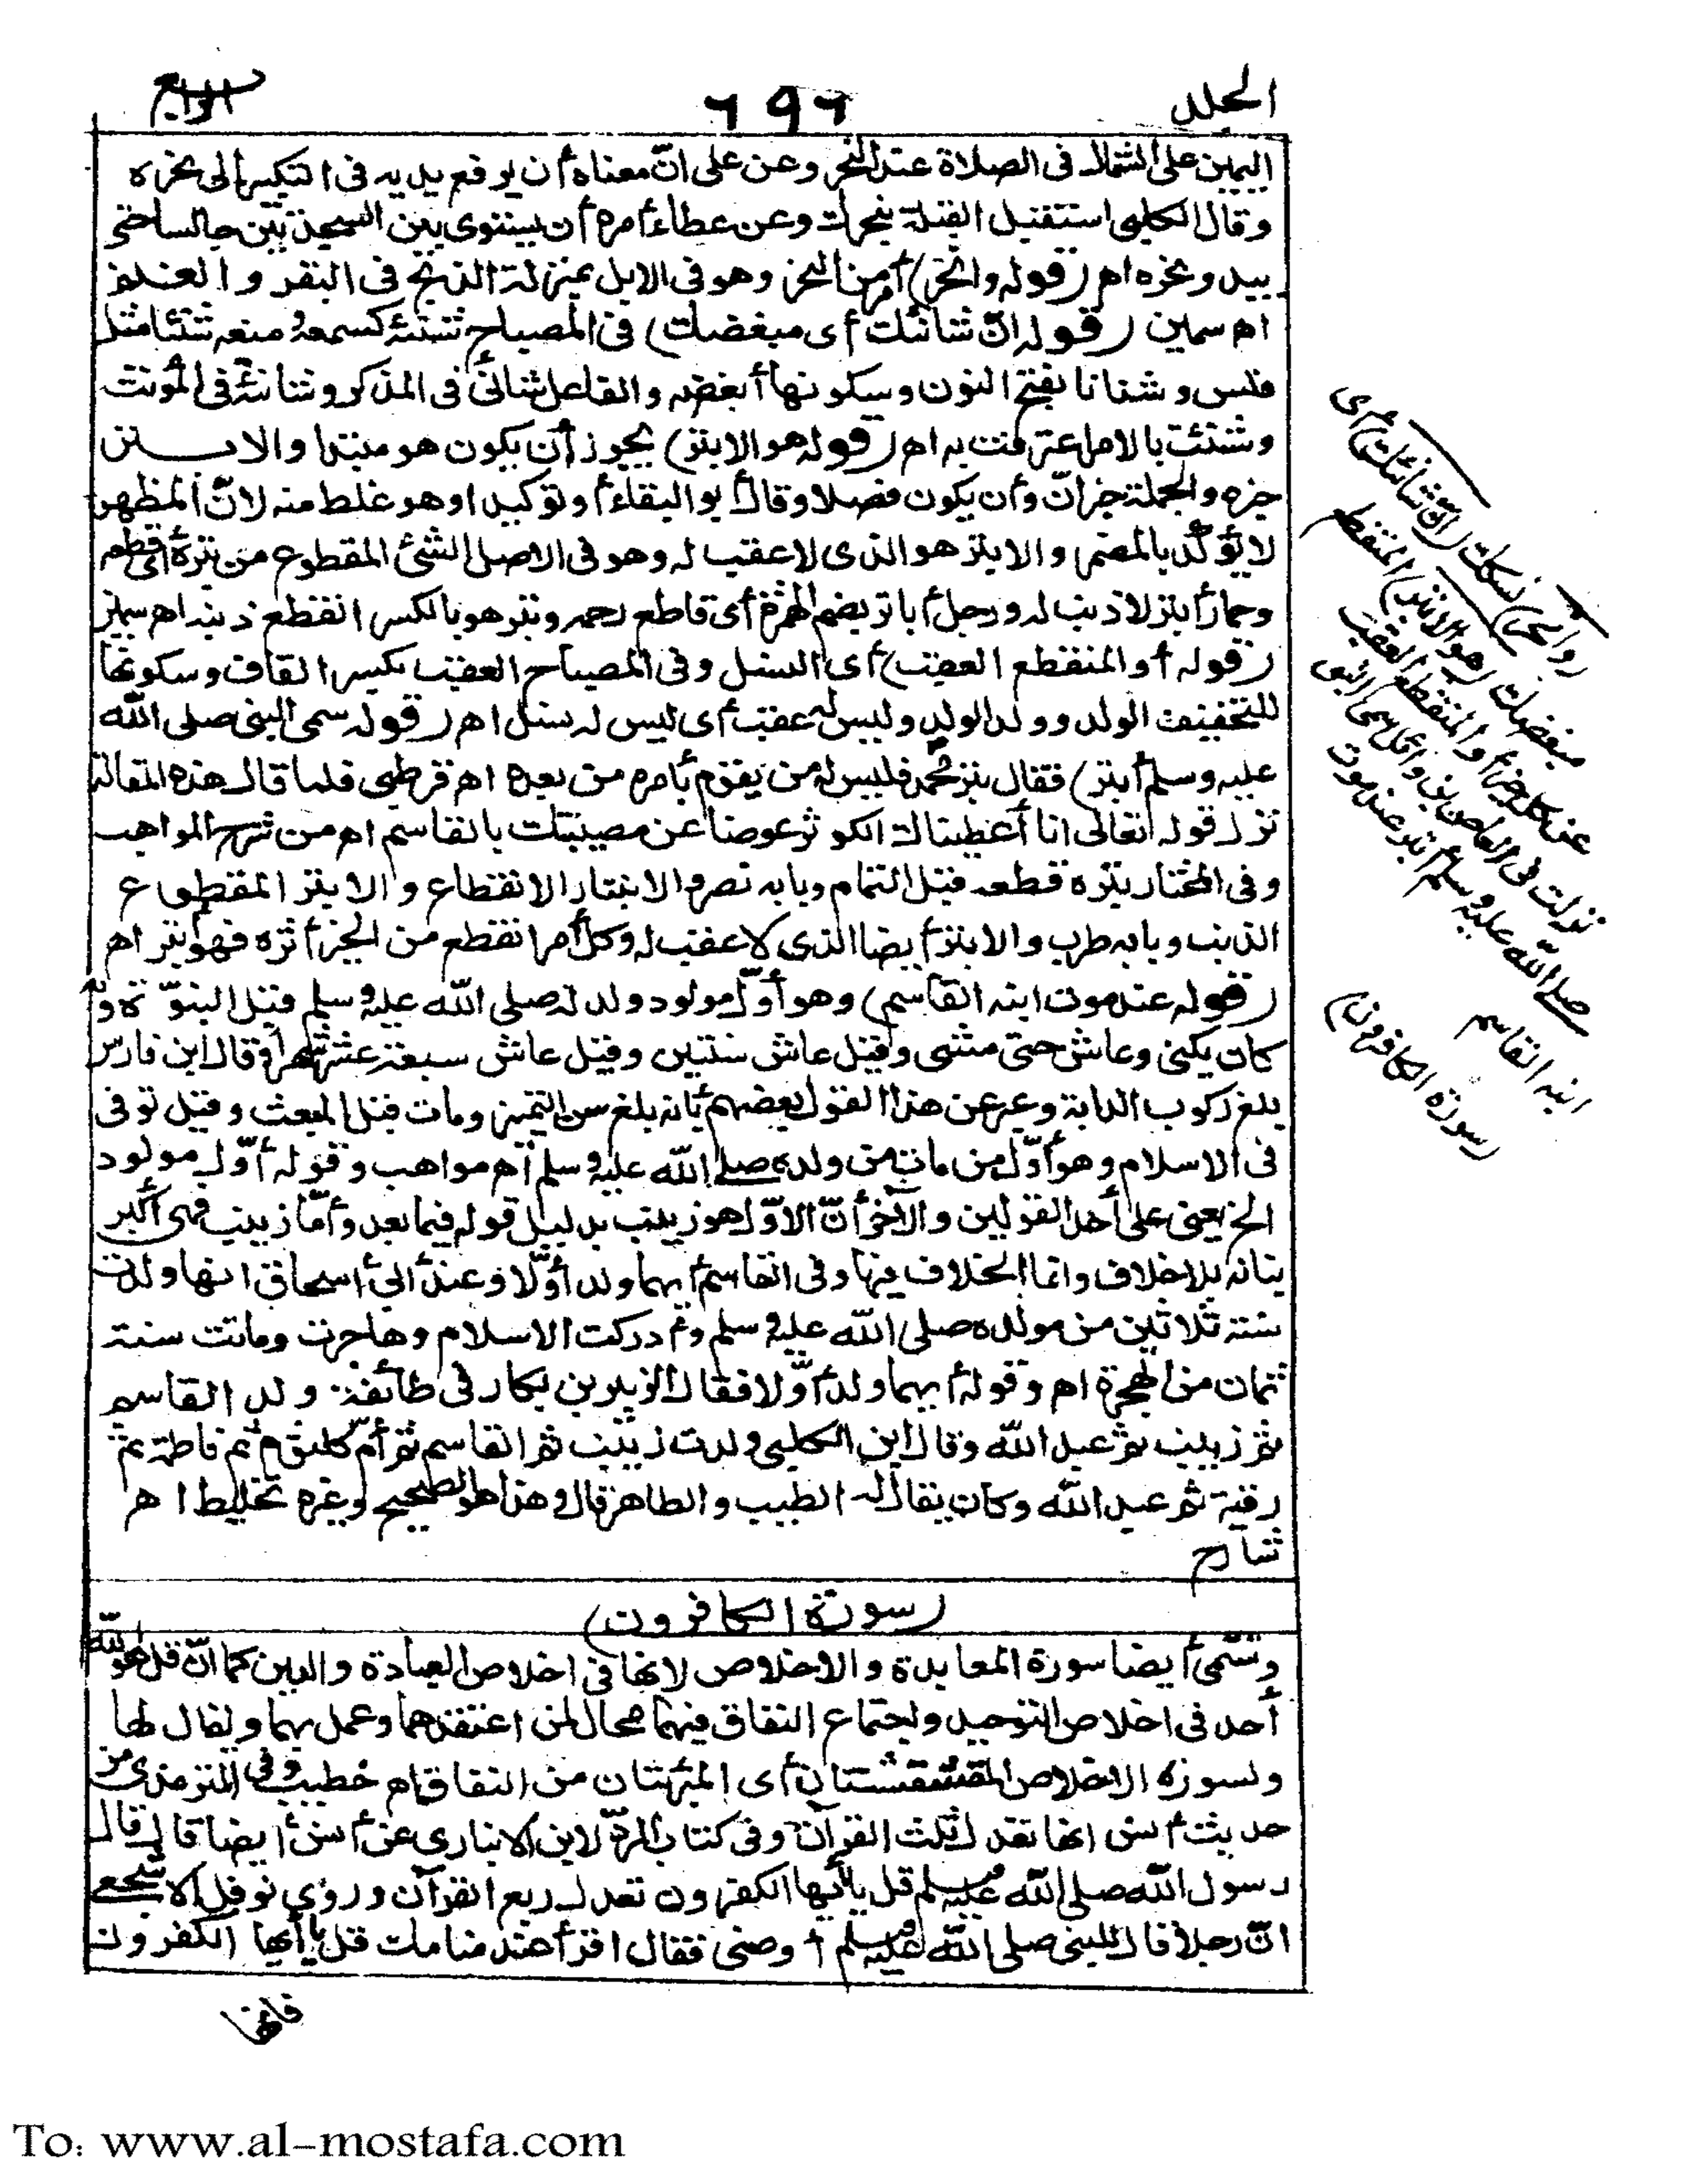 المجلد
٦٩٦
الرابع
اليمين على الشمال فى الصلاة عند النحر وعن على انّ معناه أن يرفع يديه فى التكبير الى نحره
وقال الكلبى استقبل القبلة بنحرك وعن عطاء أمره أن يستوى بين السجدتين جالسا حتى
يبدو نحره اه (قوله وانحر) أمر من النحر وهو فى الابل بمنزلة الذبح فى البقر والغنم
اه سمين (قوله انّ شانئك أى مبغضك) فى المصباح شنئه كسمعه ومنعه شنئا مثل
فلس وشنانا بفتح النون وسكونها أبغضه والفاعل شانئ فى المذكر وشانئة فى المؤنث
وشنئت بالامر اعترفت به اه (قوله هو الابتر) يجوز أن يكون هو مبتدا والابتر
خبره والجملة خبر انّ وأن يكون فصلا وقال أبو البقاء أو توكيدا وهو غلط منه لانّ المظهر
لا يؤكد بالمضمر والابتر هو الذى لا عقب له وهو فى الاصل الشئ المقطوع من بتره أى قطعه
وحمار أبتر لا ذنب له ورجل أباتر بضم الهمزة أى قاطع رحمه وبتر هو بالكسر انقطع ذنبه اه سمين
(قوله أو المنقطع العقب) أى النسل وفى المصباح العقب بكسر القاف وسكونها
للتخفيف الولد وولد الولد وليس له عقب أى ليس له نسل اه (قوله سمى النبى صلى الله
عليه وسلم أبتر) فقال بتر محمد فليس له من يقوم بأمره من بعده اه قرطبى فلما قال هذه المقالة
نزل قوله تعالى انا أعطيناك الكوثر عوضا عن مصيبتك بالقاسم اه من شرح المواهب
وفى المختار بتره قطعه قبل التمام وبابه نصر والانبتار الانقطاع والابتر المقطوع
الذنب وبابه طرب والابتر أيضا الذى لا عقب له وكل أمر انقطع من الخير أثره فهو أبتر اه
(قوله عند موت ابنه القاسم) وهو أوّل مولود ولد له صلى الله عليه وسلم قبل النبوّة وبه
كان يكنى وعاش حتى مشى وقيل عاش سنتين وقيل عاش سبعة عشر شهرا وقال ابن فارس
بلغ ركوب الدابة وعبر عن هذا القول بعضهم بأنه بلغ سن التمييز ومات قبل المبعث وقيل توفى
فى الاسلام وهو أوّل من مات من ولده صلى الله عليه وسلم اه مواهب وقوله أوّل مولود
الخ يعنى على أحد القولين والآخر أنّ الاوّل هو زينب بدليل قوله فيما بعد وأمّا زينب فهى أكبر
بناته بلا خلاف وانما الخلاف فيها وفى القاسم أيهما ولد أوّلا وعند ابن اسحاق انها ولدت
سنة ثلاثين من مولده صلى الله عليه وسلم وأدركت الاسلام وهاجرت وماتت سنة
ثمان من الهجرة اه وقوله أيهما ولد أوّلا فقال الزبير بن بكار فى طائفة ولد القاسم
ثم زينب ثم عبد الله وقال ابن الكلبى ولدت زينب ثم القاسم ثم أمّ كلثوم ثم فاطمة ثم
رقية ثم عبد الله وكان يقال له الطيب والطاهر قال وهذا هو الصحيح وغيره تخليط اه
شارح
(سورة الكافرون)
وتسمّى أيضا سورة المعابدة والاخلاص لانها فى اخلاص العبادة والدين كما انّ قل هو الله
أحد فى اخلاص التوحيد واجتماع النفاق فيهما محال لمن اعتقدهما وعمل بهما ويقال لها
ولسورة الاخلاص المقشقشتان أى المبرئتان من النفاق اه خطيب وفى الترمذى من
حديث أنس انها تعدل ثلث القرآن وفى كتاب الردّ لابن الانبارى عن أنس أيضا قال قال
رسول الله صلى الله عليه وسلم قل يا أيها الكفرون تعدل ربع القرآن وروى نوفل الاشجعى
انّ رجلا قال للنبى صلى الله عليه وسلم أوصنى فقال اقرأ عند منامك قل يا أيها الكفرون
فانها
(وانحر) نسكك (انّ شانئك) أى
مبغضك (هو الابتر) المنقطع
عن كل خير أو المنقطع العقب
نزلت فى العاص بن وائل سمى النبى
صلى الله عليه وسلم أبتر عند موت
ابنه القاسم
(سورة الكافرون)
To: www.al-mostafa.com